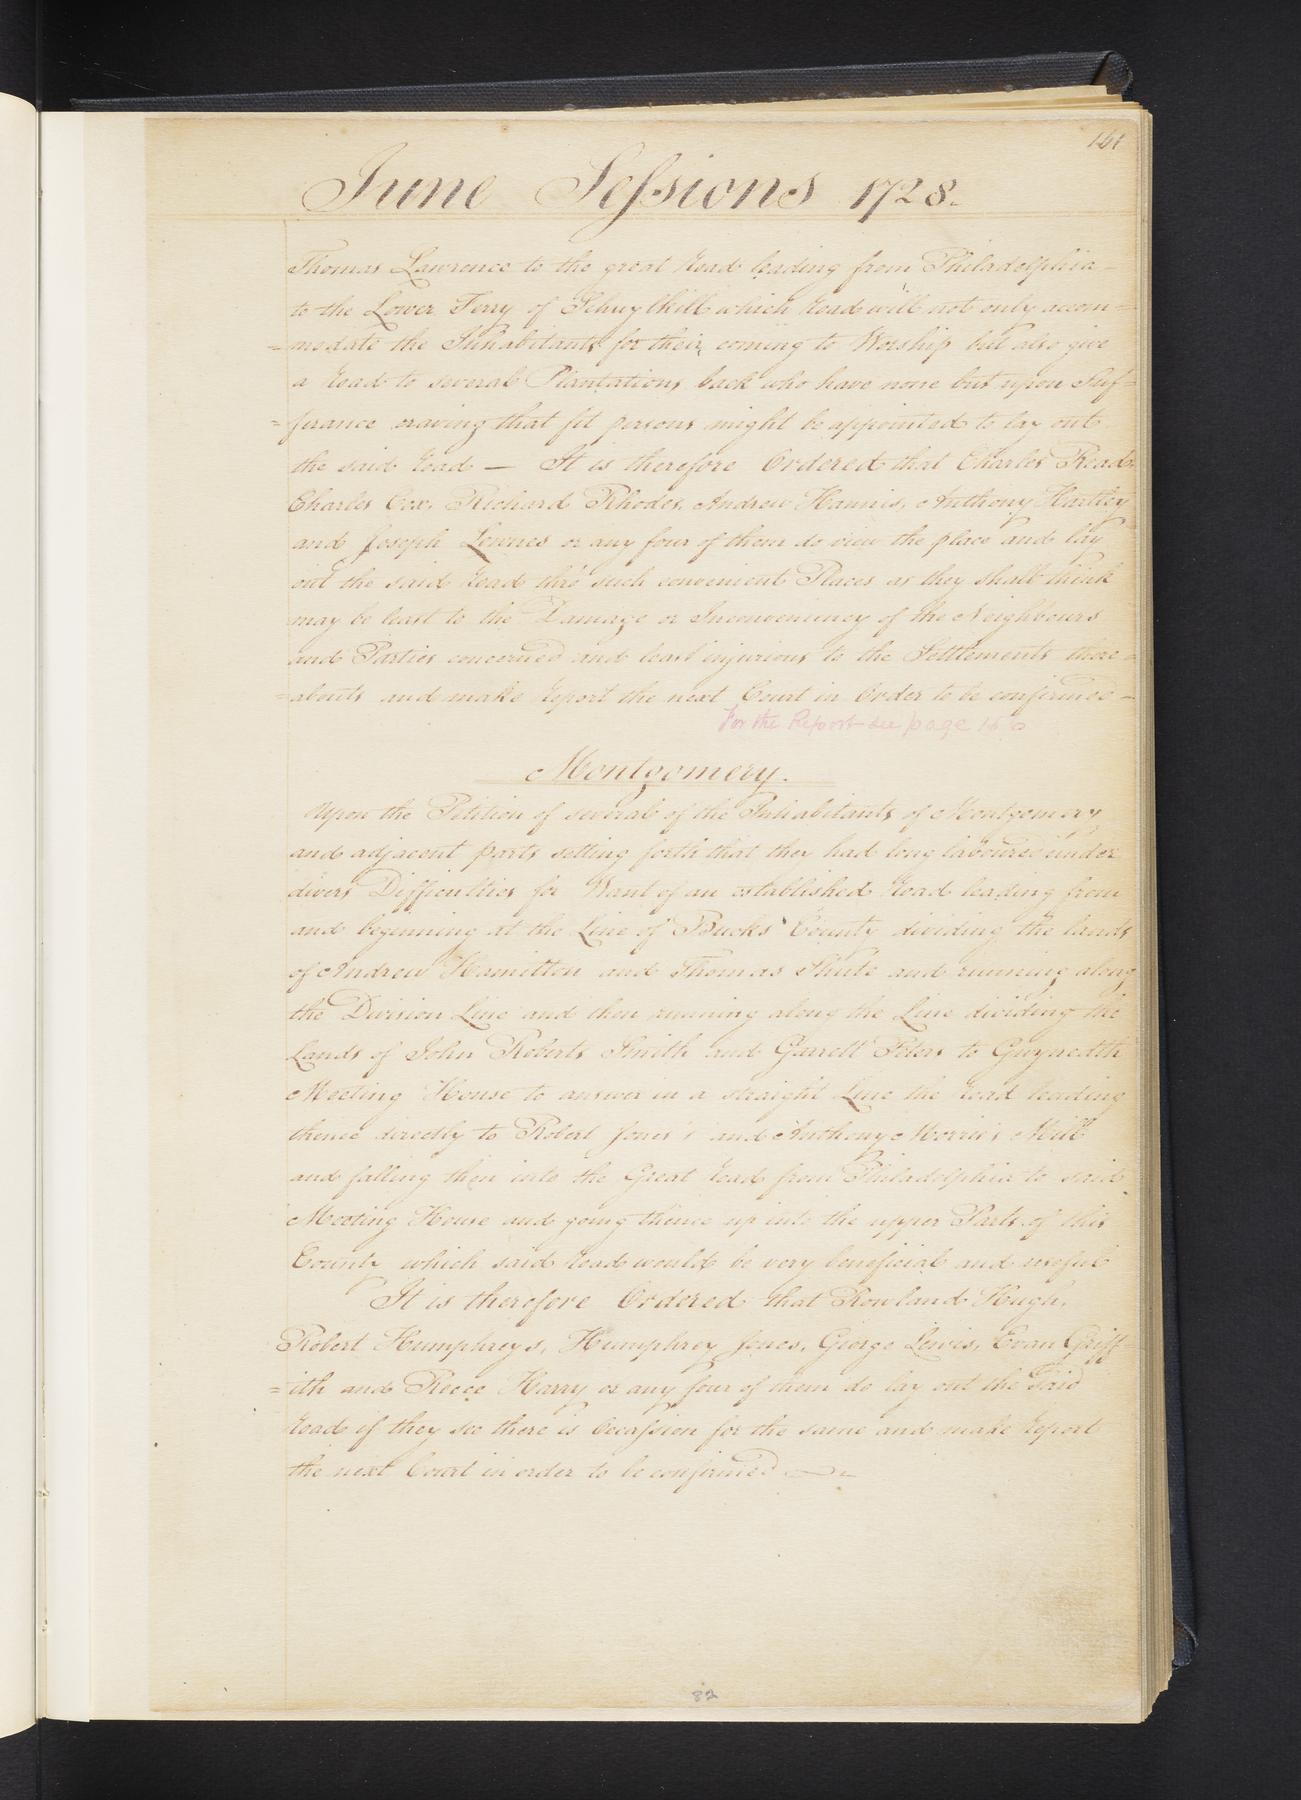 161
June Sessions 1728.
Thomas Lawrence to the great Road leading from Philadelphia –
to the Lower Ferry of Schuylkill which Road will not only accom=
=modate the Inhabitants for their coming to Worship but also give
a Road to several Plantations back who have none but upon Suf=
=ferance craving that fit persons might be appointed to lay out
the said Road — It is therefore Ordered that Charles Read
Charles Cox, Richard Rhodes, Andrew Hannis, Anthony Hartley
and Joseph Lownes or any four of them do view the place and lay
out the said Road thro' such convenient Places as they shall think
may be least to the Damage or Inconveniency of the Neighbours
and Parties concerned and least injurious to the Settlements there=
=abouts and make Report the next Court in Order to be confirmed –
For the Report see page
Montgomery.
Upon the Petition of several of the Inhabitants of Montgomery
and adjacent parts setting forth that they had long laboured under
divers Difficulties for Want of an established Road leading from
and beginning at the Line of Bucks County dividing the lands
of Andrew Hamilton and Thomas Shute and running along
the Division Line and then running along the Line dividing the
Lands of John Roberts Smith and Garrett Peters to Gwynedth
Meeting House to answer in a straight Line the Road leading
thence directly to Robert Jones's and Anthony Morris's Mill
and falling then into the Great Road from Philadelphia to said
Meeting House and going thence up into the upper Parts of this
County which said Road would be very beneficial and useful
It is therefore Ordered that Rowland Hugh,
Robert Humphreys, Humphrey Jones, George Lewis, Evan Griff=
=ith and Reece Harry or any four of them do lay out the Said
Road if they see there is Occassion for the same and make Report
the next Court in order to be confirmed
82